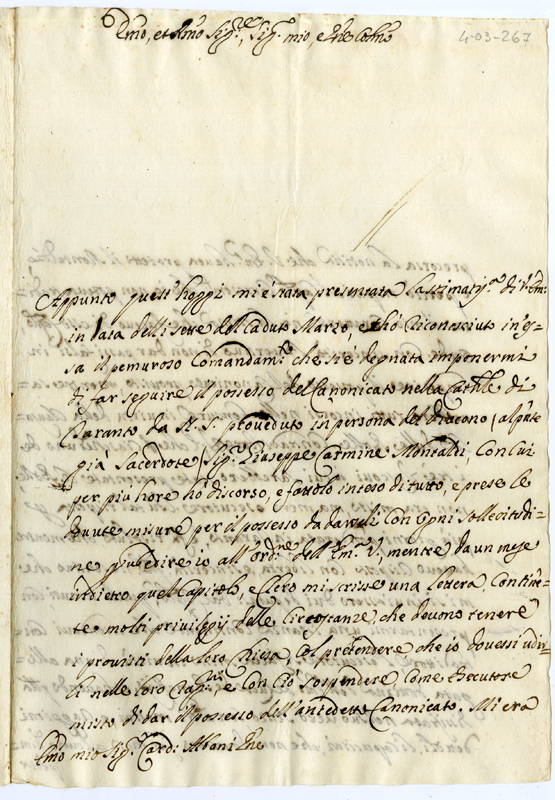 Emo, et Rmo Sigre, Sigr mio, e Pne Colmo
4-03-267
Appunto quest'hoggi mi è stata presentata la stimatissma di V. Emza
in data delli sette del caduto Marzo, e tho riconosciuto in es=
sa il premuroso Comandamto che si è degnata impormi
di far seguire il possesso del Canonicato nella Catthle di
Taranto da N. S. proveduto in persona del Diacono (al pnte
già Sacerdote) Sigr Giuseppe Carmine Montaldi, con cui
per più hore hò discorso, e fattolo inteso di tutto, e prese le
dovute misure per il possesso da darseli con ogni sollecitudi=
ne per ubedire io all'ordne dell'Emza V., mentre da un mese
indietro quel Capitolo, e Clero mi scrisse una lettera, contien=
te molti privilegij delle Circostanze, che devono tenere
i provisti della loro Chiesa, col pretendere che io dovessi udir=
li nelle loro ragni, e con ciò sospendere come Esecutore
misto di dar il possesso dell'anzedetto Canonicato. Mi era
Emo mio Sigr Cardl Albani Pne